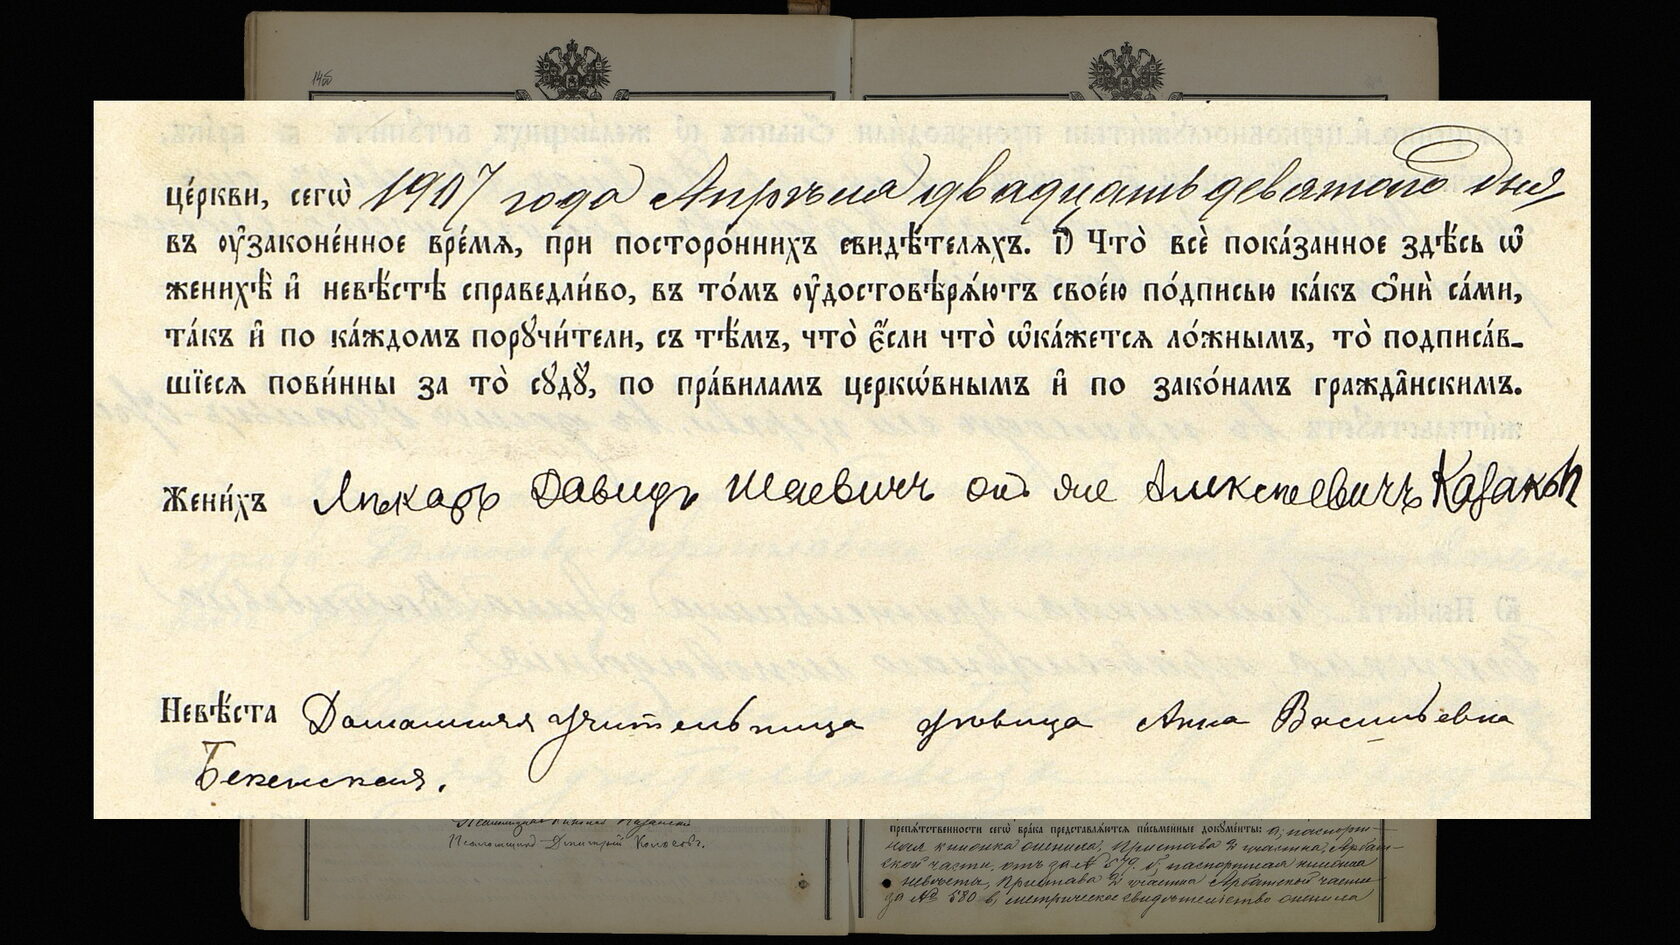 1400
це́ркви, сегѡ̀ 1907 года Апрѣля двадцать девятого дня
въ ᲂу҆зако́нное вре́мя, при посторо́ннихъ свидѣ́теляхъ. Что̀ всѐ пока́занное здѣ́сь ѡ҆
женихѣ̀ и҆ невѣ́стѣ справедли́во, въ то́мъ ᲂу҆достовѣря́ютъ свое́ю по́дписью ка́къ ѻ҆нѝ са́ми,
та́къ и҆ по ка́ждомъ порꙋчи́тели, съ тѣ́мъ, что̀ є҆́сли что̀ ѡ҆ка́жется ло́жнымъ, то̀ подписа́в-
шїеся пови́нны за то̀ сꙋдꙋ̀, по пра́виламъ церко́внымъ и҆ по зако́намъ гражда́нскимъ.
Жени́хъ Лѣкарь Давидъ Шаевичъ онъ же Алексѣевичъ Казакъ
Невѣ́ста Домашняя учительница дѣвица Анна Васильевна
Бекенская.
Псаломщикъ Дмитрій
препѧтственности сегѡ̀ бра́ка представлѧ́ются пи́сьменные докꙋме́нты: а, паспорт-
ная книжка жениха, Пристава 2 участка, Арбат-
ской части, отъ за № 579. б, паспортная книжка
невѣсты, Пристава 2 участка Арбатской части
за № 580 в, метрическое свидѣтельство жениха